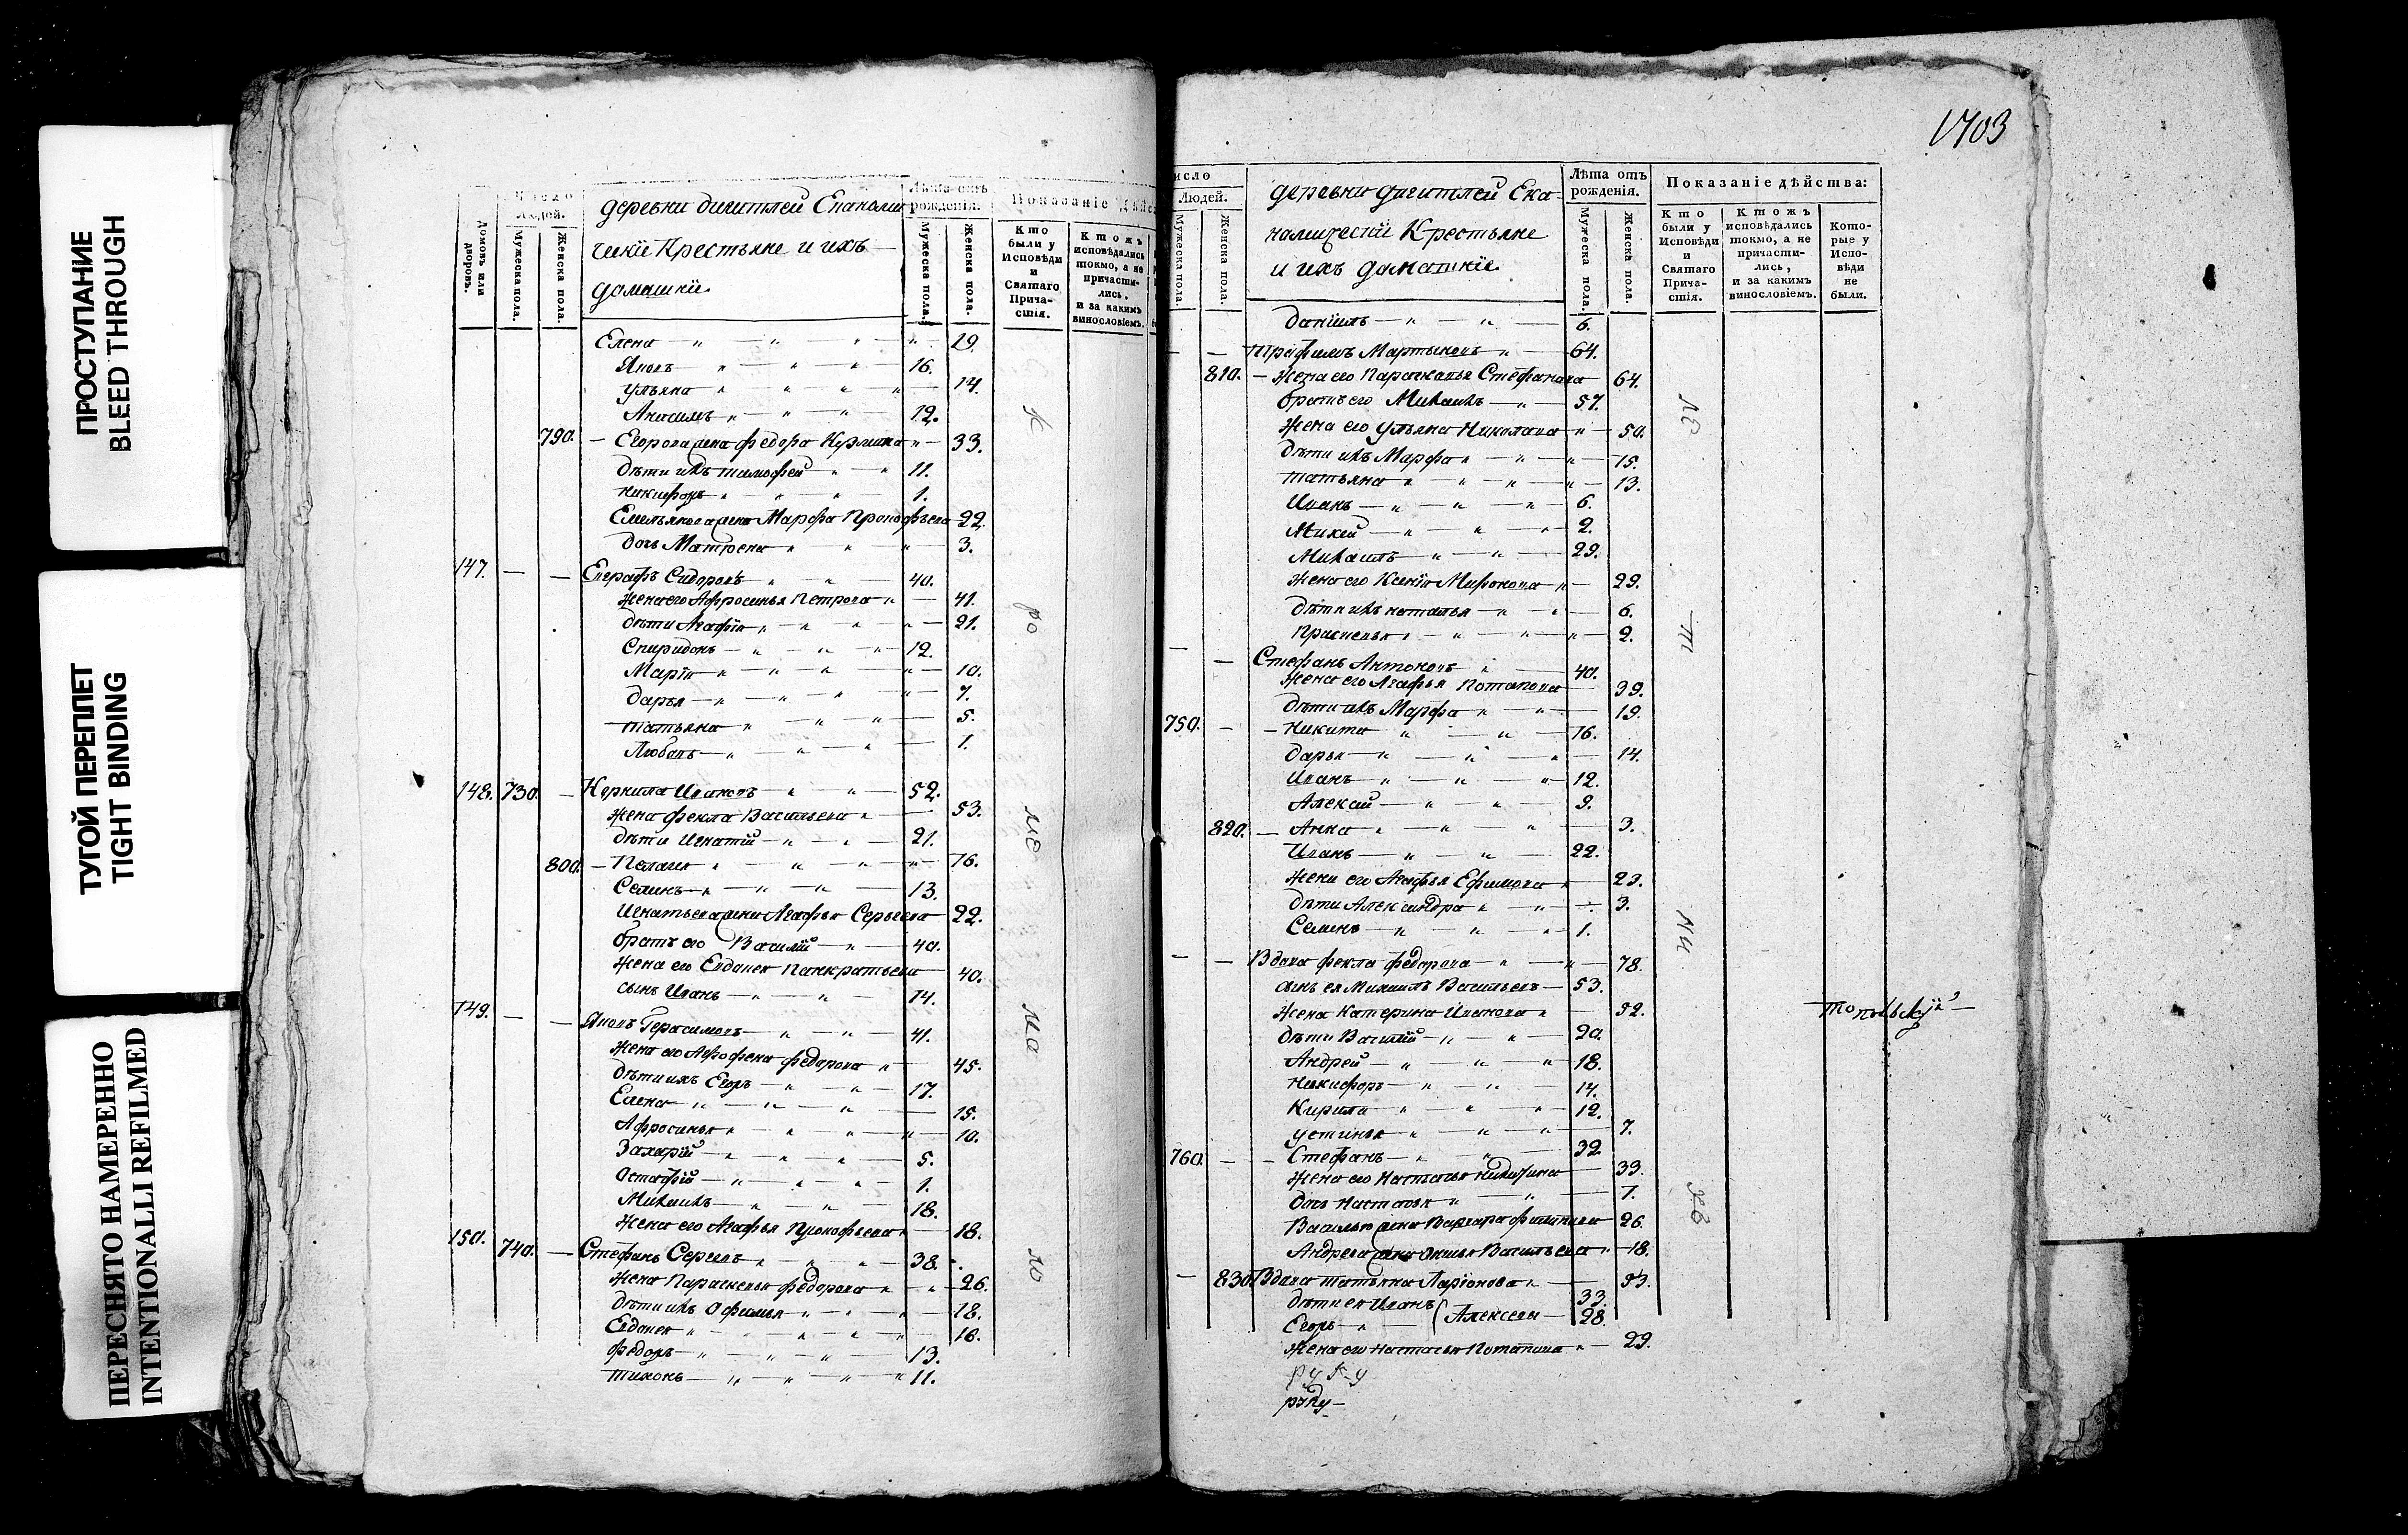 ПРОСТУПАНИЕ
BLEED THROUGH
ТУГОЙ ПЕРЕПЛЕТ
TIGHT BINDING
ПЕРЕСНЯТО НАМЕРЕННО
INTENTIONALLI REFILMED
Число
Людей.
Домовъ или дворовъ.
Мужеска пола.
Женска пола.
деревни
ческiе Крестьяне и ихъ
домашнiе
Лѣта отъ рожденiя.
Мужеска пола.
Женска пола.
Показанiе дѣйс
Кто были у Исповѣди и Святаго Прича-стiя.
Ктожъ исповѣдались токмо, а не причасти-лись, и за какимъ винословiемъ.
Елена 19.
Яковъ 16.
Ульяна 14.
Анисимъ 12.
790. Егорова жена Федора 33.
Дѣти ихъ Тимофей 11.
Никифоръ 1.
Емельянова жена Марфа Прокофьева 22.
дочь Матрена 3.
147. Евграфъ Сидоровъ 40.
Жена его Афросинья Петрова 41.
Дѣти Агафiя 21.
Спиридонъ 12.
Марiя 10.
Дарья 7.
Татьяна 5.
Любовь 1.
148. 730. Корнила Ивановъ 52.
Жена Фекла Васильева 53.
Дѣти Игнатiй 21.
800. Пелагея 16.
Семенъ 13.
Игнатьева жена Агафья Сергеева 22.
братъ его Василiй 40.
Жена его Евдокея Панкратьева 40.
сынъ Иванъ 14.
149. Яковъ Герасимовъ 41.
Жена его Федорова 45.
Дѣти ихъ Егоръ 17.
Елена 15.
Афросинья 10.
Захарiй 5.
Остафiй 1.
Михаилъ 18.
Жена его Агафья Прокофьева 18.
150. 740. Стефанъ Сергеевъ 38.
Жена Параскевья Федорова 26.
Дѣти ихъ Офимья 18.
Евдокея 16.
Федоръ 13.
Тихонъ 11.
1703
исло
Людей.
Мужеска пола.
Женска пола.
деревни Ека-
номическiи Крестьяне
и ихъ домашнiе
Лѣта отъ рожденiя.
Мужеска пола.
Женска пола.
Показанiе дѣйства:
Кто были у Исповѣди и Святаго Прича-стiя.
Ктожъ исповѣдались токмо, а не причасти-лись, и за какимъ винословiемъ.
Кото-рые у Испо-вѣди не были.
Данiилъ 6.
Трафимъ Мартыновъ 64.
810. Жена его Параскевья Стефанова 64.
братъ его Михаилъ 57.
Жена его Ульяна Николаева 50.
Дѣти ихъ Марфа 15.
Татьяна 13.
Иванъ 6.
Михей 2.
Михаилъ 29.
Жена его Ксенiя Миронова 29.
Дѣти ихъ Наталья 6.
2.
Стефанъ Антоновъ 40.
Жена его Агафья Потапова 39.
Дѣти ихъ Марфа 19.
750. Никита 16.
Дарья 14.
Иванъ 12.
Алексей 9.
820. Анна 3.
Иванъ 22.
Жена его Агафья Ефимова 23.
Дѣти Александра 3.
Семенъ 1.
Вдова Фекла Федорова 78.
сынъ ея Михаилъ Васильевъ 53.
Жена Катерина Иванова 52.
Дѣти Василiй 20.
Андрей 18.
Никифоръ 14.
Кирила 12.
Устинья 7.
760. Стефанъ 32.
Жена его Настасья Никитина 33.
дочь Настасья 1.
Васильева жена Варвара 26.
Андреева жена Васильева 18.
830. Вдова Татьяна Ларiонова 53.
Дѣти ея Иванъ 33.
Егоръ Алексеевы 28.
Жена его Настасья Потапова 29.
руку